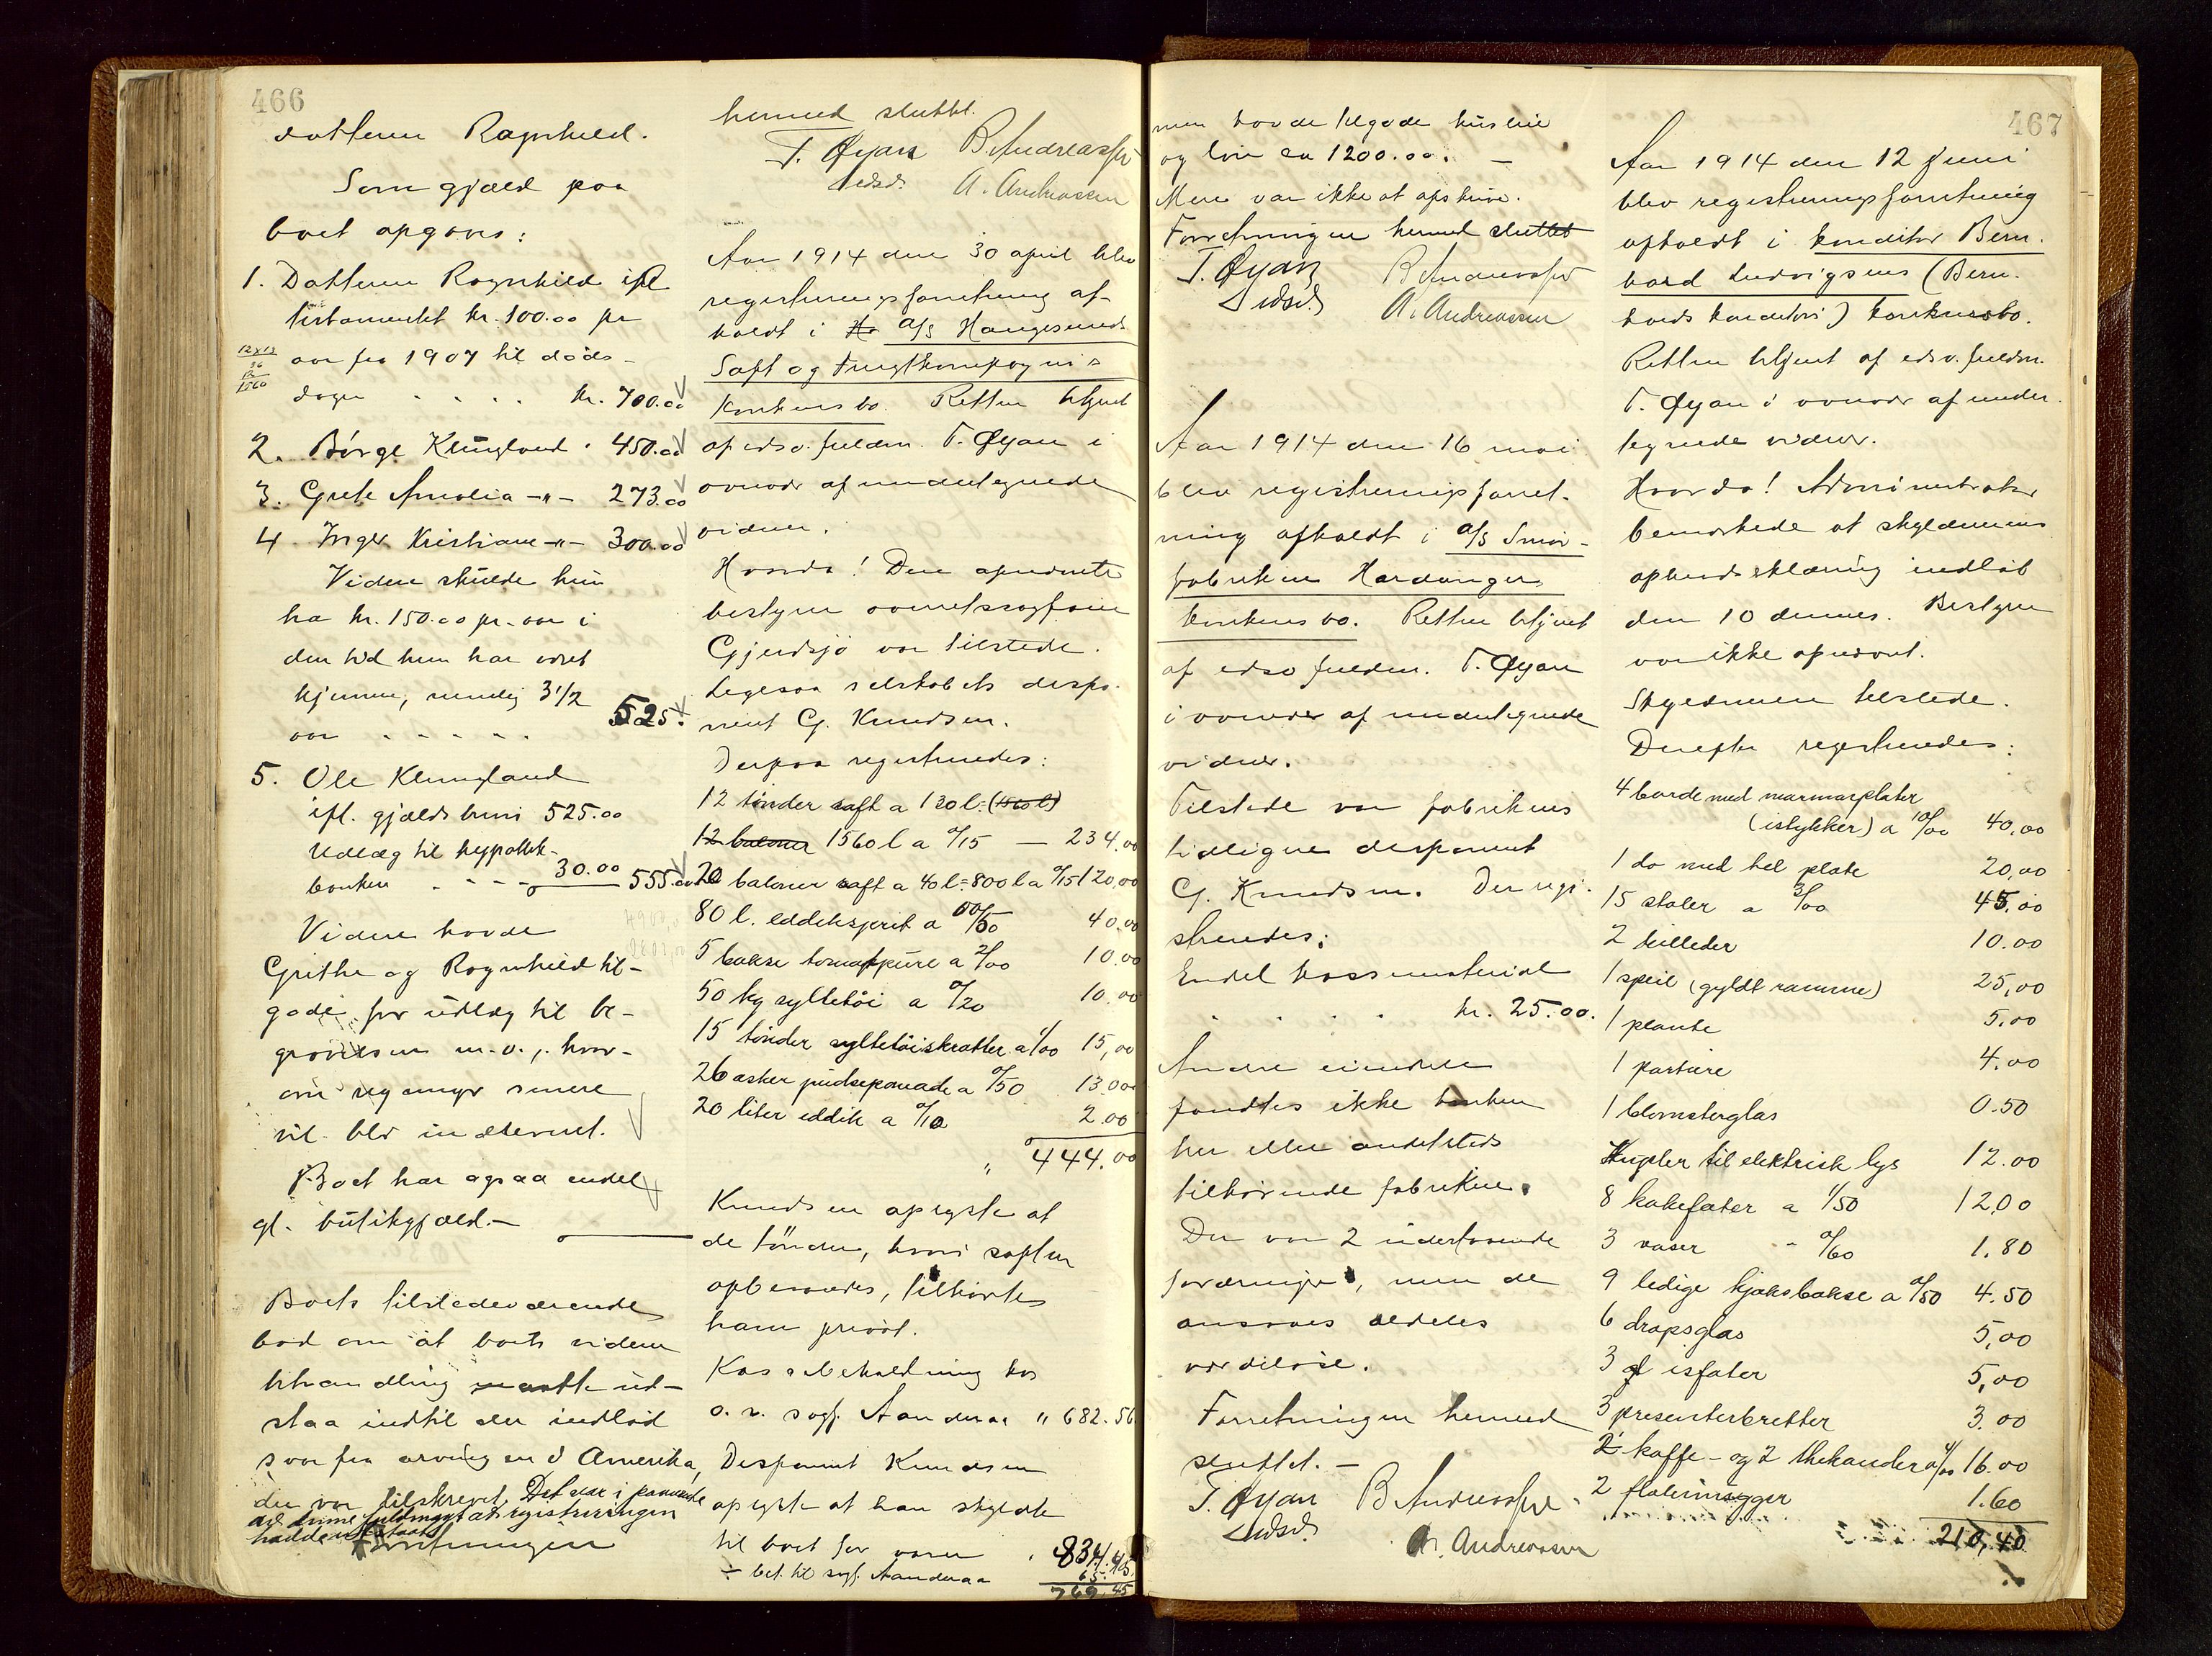 466
datteren Ragnhild.
Som gjæld paa
boet opgaves:
1. Datteren Ragnhild ifl
testamentet kr. 100.00 pr
aar fra 1907 til døds-
dagen . . . . kr. 700.00
12x13
36
12
1560
2. Børge Klungland " 450.00
3. Grete Amalia -"- 273.00
4. Inger Kristiane -"- 300.00
Videre skulde hun
ha kr. 150.00 pr. aar i
den tid hun har været
hjemme, nemlig 3 1/2
aar . . . . . 525.
5. Ole Klungland
ifl. gjældsbevis 525.00
Udlæg til hypothek-
banken . . . 30.00 555.00
Videre havde
Grethe og Ragnhild til-
gode for utlæg til be-
gravelsen m.v., hvor-
om regninger senere
vil bli indleveret.
Boet har ogsaa endel
gl. butikgjæld.-
Boets tilstedeværende
bad om at boets videre
behandling maatte ud-
staa indtil der indløb
svar fra arvingen i Amerika,
der var tilskrevet. Det var i paavente
av denne fuldmagt at registreringen
hadde utstaat
Forretningen
hermed sluttet.
T. Øyan B Andreassen
edsv. A. Andreassen
Aar 1914 den 30 april blev
registreringsforretning af-
holdt i Ha A/S Haugesunds
Saft og Frugtkompagnis
konkursbo. Retten betjent
af edsv. fuldm. T. Øyan i
overvær af undertegnede
vidner.
Hvorda! Den opnævnte
bestyrer overretssagfører
Gjerdsjø var tilstede.
Ligesaa selskabets dispo-
nent G. Knudsen.
Derpaa registreredes:
12 tønder saft a 130 l. (1560 l)
12 baloner 1560 l a 0/15 — 234.00
20 baloner saft a 40 l = 800 l a 0/15 120,00
80 l. eddiksprit a 0/50 40.00
5 bokse tomatpure a 2/00 10.00
50 kg syltetøi a 0/20 10.00
15 tønder syltetøiskratter a 1/00 15,00
26 æsker pudsepomade a 0/50 13.00
20 liter eddik a 0/10 2.00
" 444.00
Knudsen oplyste at
de tønder, hvori saften
opbevaredes, tilhørte
ham privat.
Kassebeholdning hos
o. r. sagf. Aanderaa " 682.56
Disponent Knudsen
oplyste at han skyldte
til boet for varer " 834.45
÷ bet. til sagf. Aanderaa 65.
769.45
467
men havde tilgode husleie
og løn ca 1200.00. —
Mere var ikke at opskrive.
Forretningen hermed sluttet
T. Øyan B Andreassen
edsv. A. Andreassen
Aar 1914 den 16 mai
blev registreringsforret-
ning afholdt i A/S Smør-
fabriken Hardangers
konkursbo. Retten betjent
af edsv fuldm. T. Øyan
i overvær af undertegnede
vidner.
Tilstede var fabrikens
tidligere disponent
G. Knudsen. Der regi-
streredes:
Endel kassemateriale
. . . . kr. 25.00.
Andre eiendele
fandtes ikke hverken
her eller andetsteds
tilhørende fabriken.
Der var 2 udestaaende
fordringer, men de
ansaaes aldeles
værdiløse.
Forretningen hermed
sluttet. —
T. Øyan B Andreassen
edsv. A. Andreassen
Aar 1914 den 12 juni
blev registreringsforretning
afholdt i konditor Bern-
hard Ludvigsens (Bern-
hards konditori) konkursbo.
Retten betjent af edsv. fuldm.
T. Øyan i overvær af under-
tegnede vidner.
Hvorda! Administrator
bemærkede at skyldnerens
opbudserklæring indløb
den 10 dennes. Bestyrer
var ikke opnævnt.
Skyldneren tilstede.
Derefter registreredes:
4 borde med marmorplater
(istykker) a 10/00 40,00
1 do med hel plate 20,00
15 stoler a 3/00 45,00
2 billeder 10.00
1 speil (gyldt ramme) 25,00
1 plante 5,00
1 portiere 4.00
1 blomsterglas 0.50
Kupler til elektrisk lys 12.00
8 kakefater a 1/50 12,00
3 vaser " 0/60 1.80
9 ledige kjæksbokse a 0/50 4.50
6 dropsglas 5,00
3 gl isfater 5,00
3 presenterbretter 3.00
2 kaffe- og 2 thekander a 4/00 16.00
2 fløtemugger 1.60
210,40